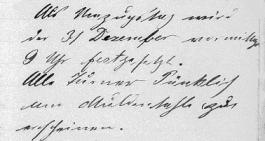 Als Umzugstag wird
der 31 Dezember vormittag
9 Uhr festgesetzt.
Alle Turner Pünklich
um
erscheinen.